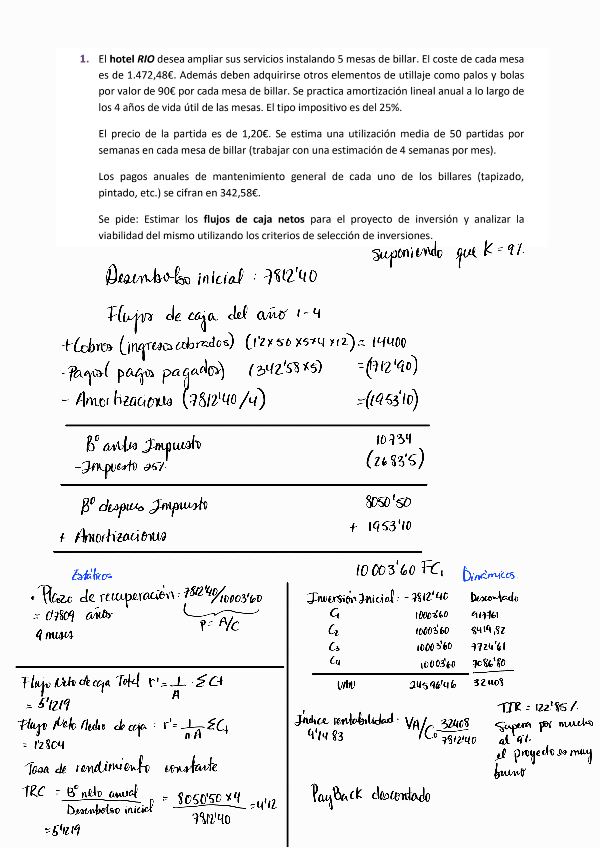 1. El hotel RIO desea ampliar sus servicios instalando 5 mesas de billar. El coste de cada mesa
es de 1.472,48€. Además deben adquirirse otros elementos de utillaje como palos y bolas
por valor de 90€ por cada mesa de billar. Se practica amortización lineal anual a lo largo de
los 4 años de vida útil de las mesas. El tipo impositivo es del 25%.
El precio de la partida es de 1,20€. Se estima una utilización media de 50 partidas por
semanas en cada mesa de billar (trabajar con una estimación de 4 semanas por mes).
Los pagos anuales de mantenimiento general de cada uno de los billares (tapizado,
pintado, etc.) se cifran en 342,58€.
Se pide: Estimar los flujos de caja netos para el proyecto de inversión y analizar la
viabilidad del mismo utilizando los criterios de selección de inversiones.
suponiendo que K = 9%
Desembolso inicial : 7812'40
Flujos de caja del año 1-4
+ Cobros (ingresos cobrados) (1'2 x 50 x 5 x 4 x 12) = 14400
- Pagos (pagos pagados) (342'58 x 5) = (1712'90)
- Amortizaciones (7812'40/4) = (1953'10)
Bº antes Impuesto 10734
- Impuesto 25% (2683'5)
Bº despues Impuesto 8050'50
+ Amortizaciones + 1953'10
10003'60 FC₁
Estáticos
• Plazo de recuperación : 7812'40/10003'60
= 0'7809 años P = A/C
9 meses
Flujo Neto de caja Total r' = 1/A · ΣCt
= 5'1219
Flujo Neto Medio de caja : r' = 1/nA ΣCt
= 1'2804
Tasa de rendimiento constante
TRC = Bº neto anual / Desembolso inicial = 8050'50 x 4 / 7812'40 = 4'12
= 5'1219
Dinámicos
Inversión Inicial : - 7812'40 Descontado
C₁ 10003'60 9177'61
C₂ 10003'60 8419,82
C₃ 10003'60 7724'61
C₄ 10003'60 7086'80
VAN 24596'46 32408
Índice rentabilidad · VA/C₀ 32408/7812'40
4'1483
TIR = 122'85%
Supera por mucho
al 9%
el proyecto es muy
bueno
PayBack descontado